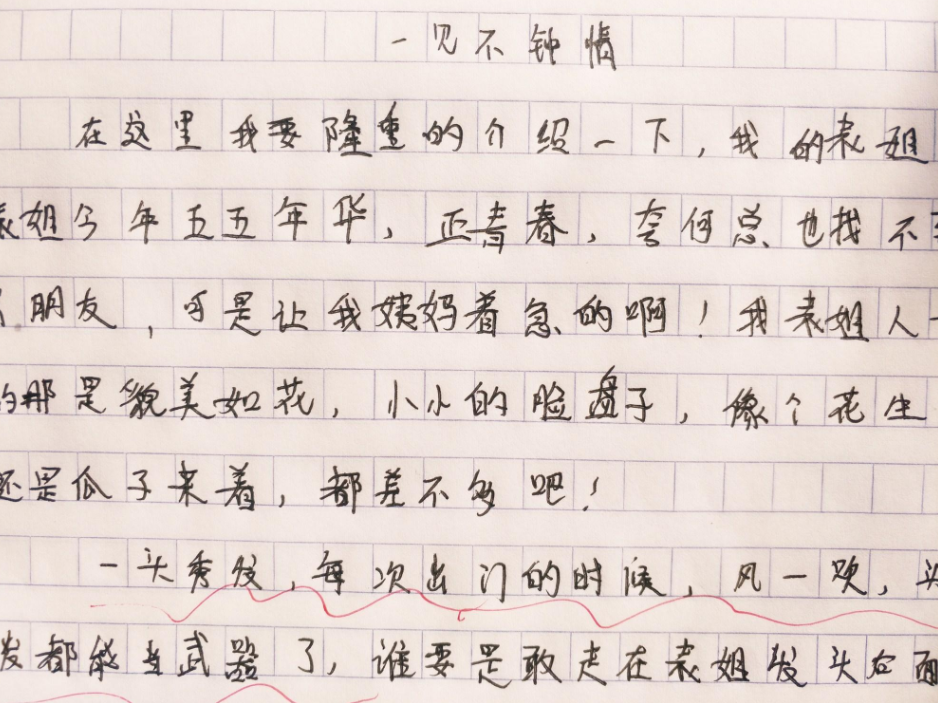 一见不钟情
在这里我要隆重的介绍一下,我的表姐
表姐今年五五年华,正青春,奈何总也找不
朋友,可是让我姨妈着急的啊!我表姐人
的那是貌美如花,小小的脸盘子,像个花生
还是瓜子来着,都差不多吧!
一头秀发,每次出门的时候,风一吹,头
发都能当武器了,谁要是敢走在表姐发头右面